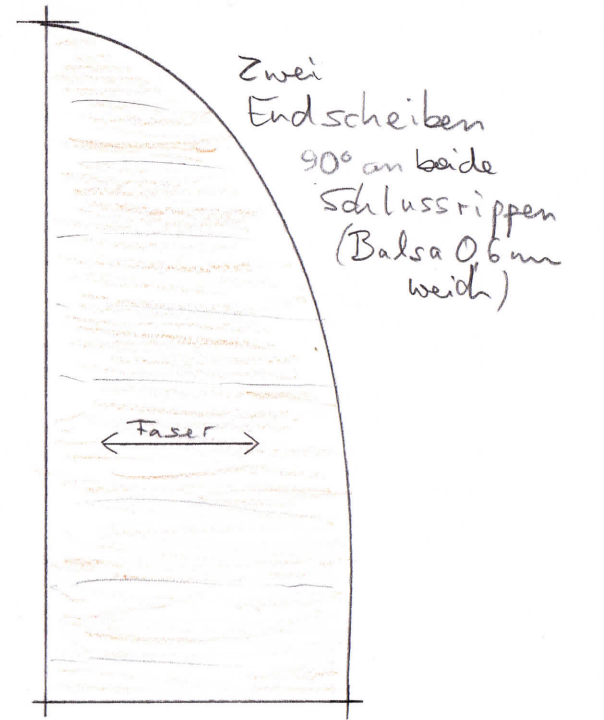 Zwei
Endscheiben
90° an beide
Schlussrippen
(Balsa 0,6 mm
weich)
Faser